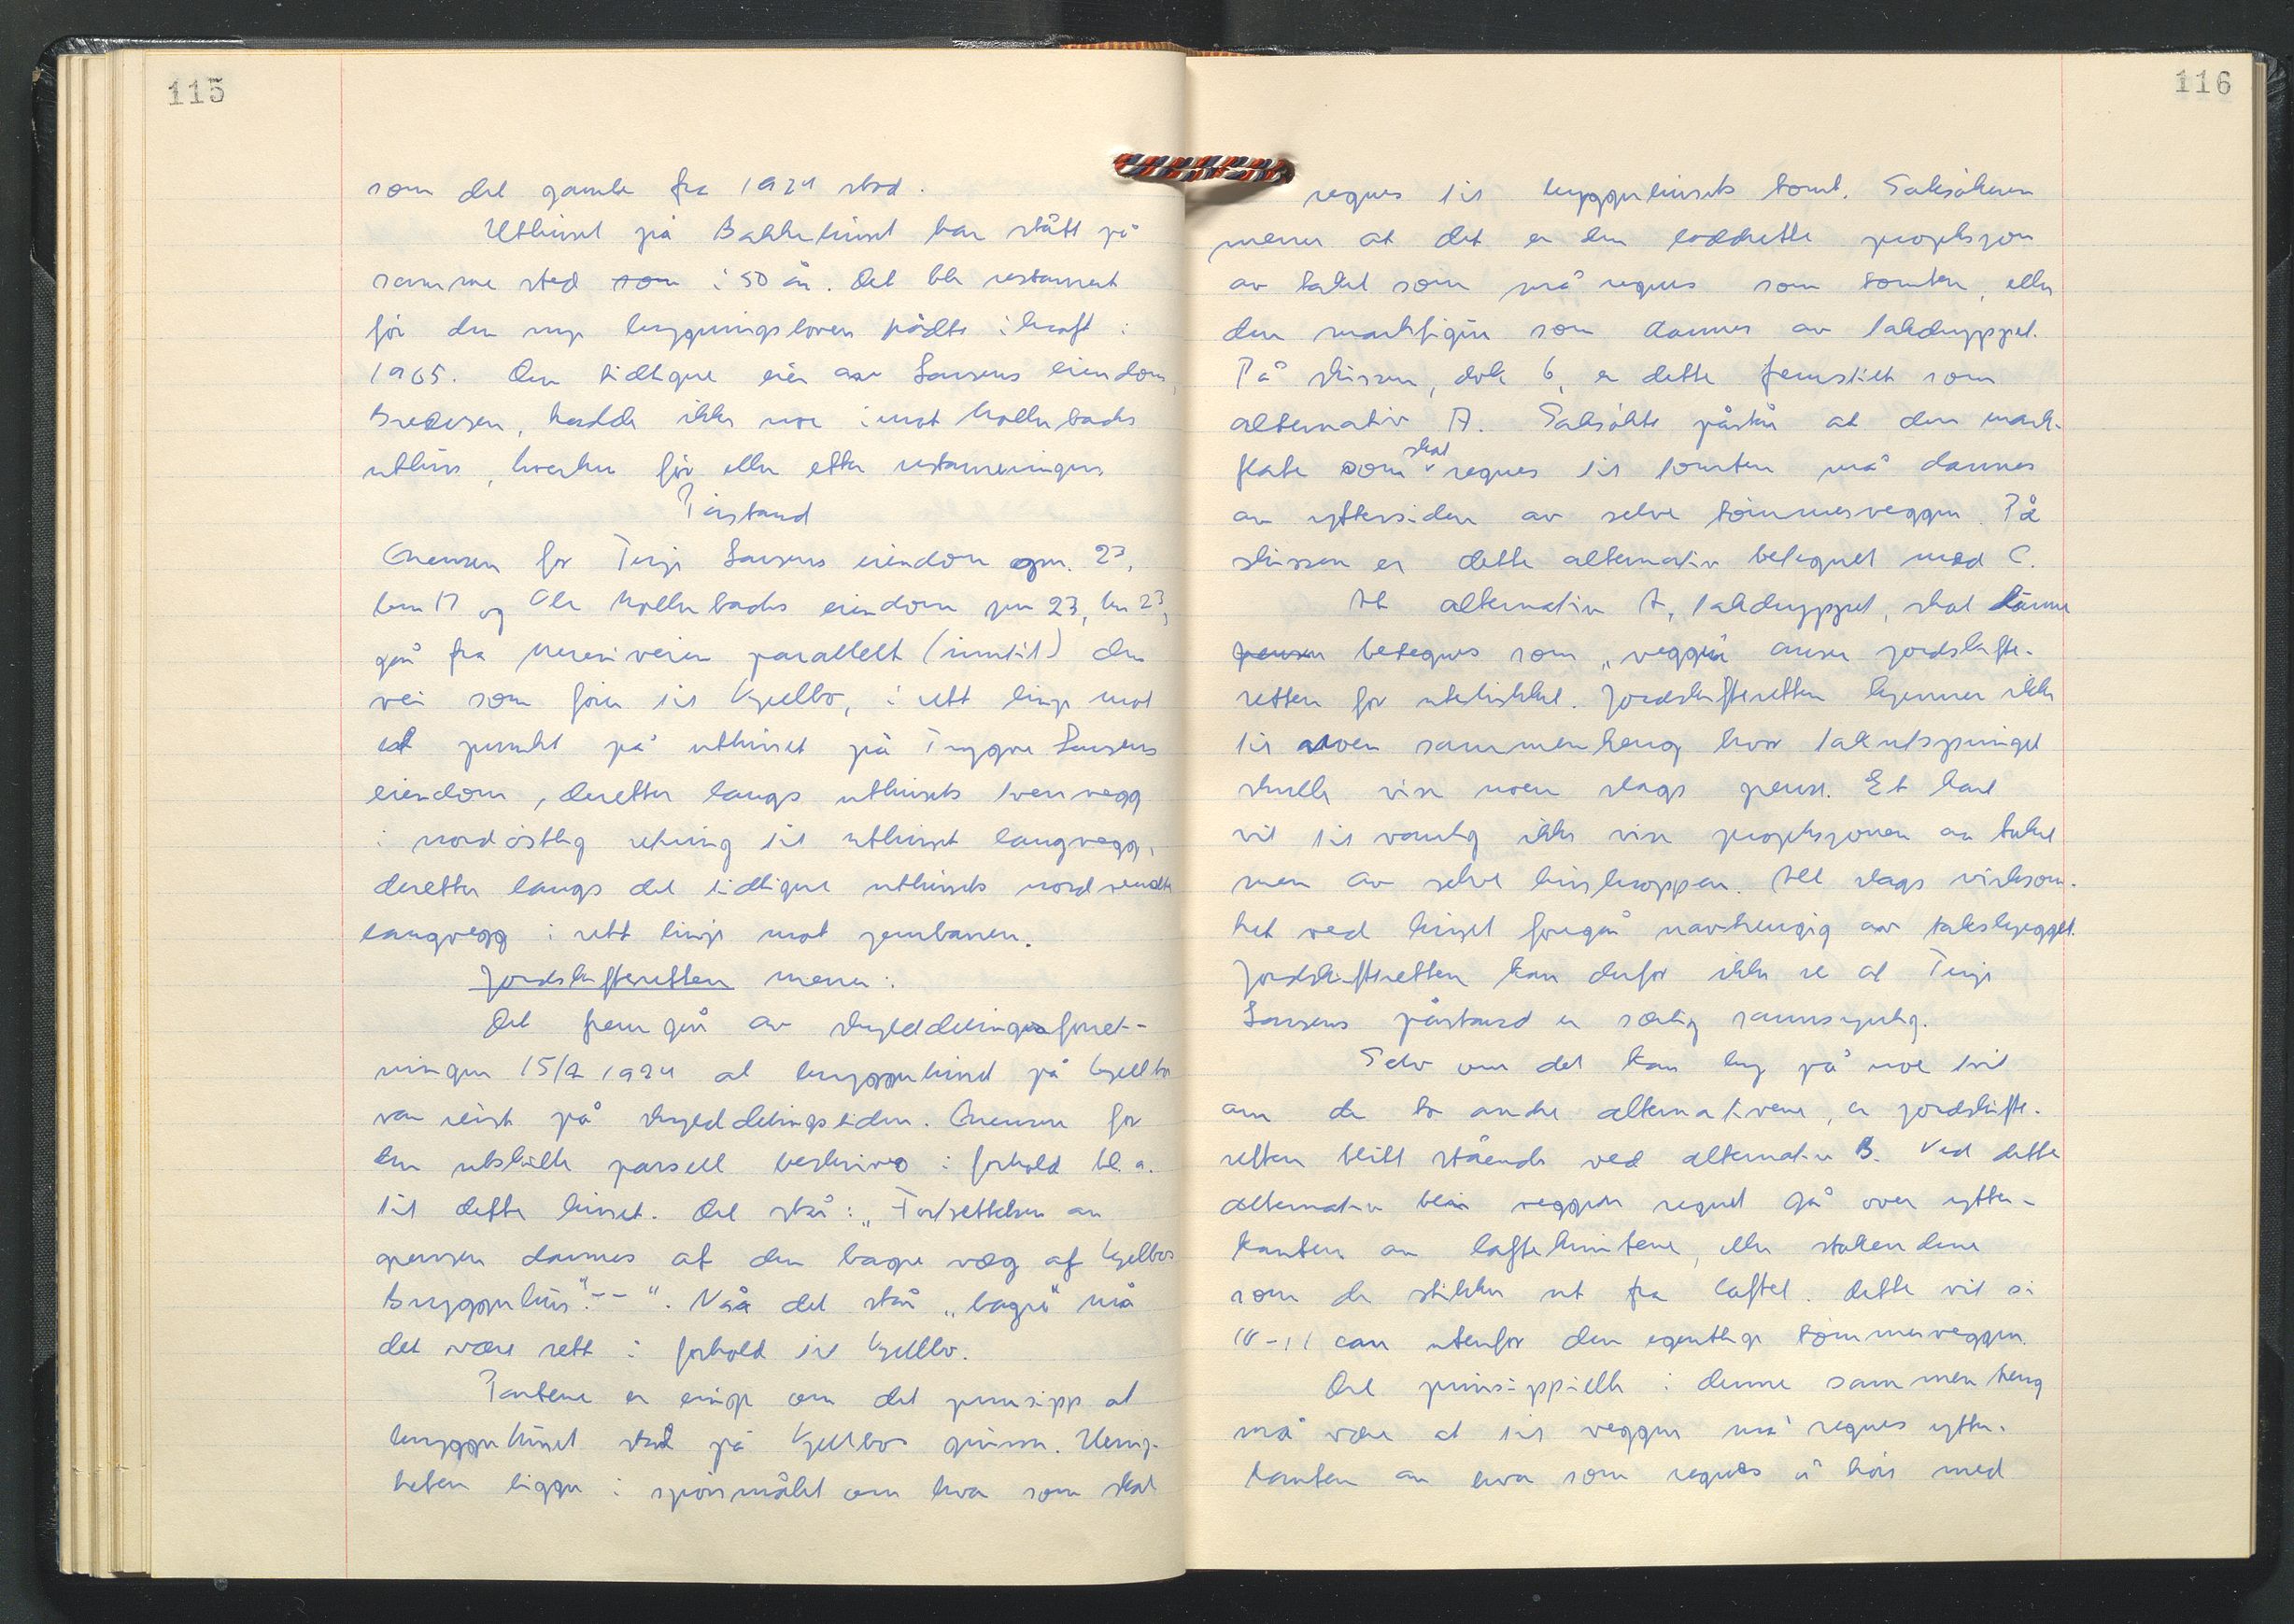 115
som det gamle fra 1924 stod.
Uthuset på Bakkehuset har stått på
samme sted som i 50 år. Det ble restaurert
før den nye bygningsloven trådte i kraft i
1965. Den tidligere eier av Larsens eiendom,
Bredesen, hadde ikke noe imot Mollerbachs
uthus, hverken før eller etter restaureringen.
Påstand
Grensen for Terje Larsens eiendom gnr. 23,
bnr 17 og Ole Mollerbachs eiendom gnr 23, bnr 23,
går fra Meresveien parallelt (inntil) den
vei som fører til Kjellbo, i rett linje mot
et punkt på uthuset på Trygve Larsens
eiendom, deretter langs uthusets tverrvegg
i nordøstlig retning til uthusets langvegg,
deretter langs det tidligere uthusets nordvendte
langvegg i rett linje mot jernbanen.
Jordskifteretten mener:
Det fremgår av skylddelingsforret-
ningen 15/2 1924 at bryggerhuset på Kjellbo
var reist på skylddelingstiden. Grensene for
den utskilte parsell beskrives i forhold bl.a.
til dette huset. Det står: „Fortsettelsen av
grensen dannes af den bagre væg af Kjelbos
Bryggerhus"-- ". Når det står „bagre" må
det være sett i forhold til Kjellbo.
Partene er enige om det prinsipp at
bryggerhuset stod på Kjellbos grunn. Uenig-
heten ligger i spørsmålet om hva som skal
116
regnes til bryggerhusets tomt. Saksøkeren
mener at det er den loddrette projeksjon
av taket som må regnes som tomten, eller
den markfigur som dannes av takdryppet.
På skissen, dok 6, er dette fremstilt som
alternativ A. Saksøkte påstår at den mark-
flate som skal regnes til tomten må dannes
av yttersiden av selve tømmerveggen. På
skissen er dette alternativ betegnet med C.
At alternativ A, takdryppet, skal kunne
grensen betegnes som „veggen" anser jordskifte-
retten for utelukket. Jordskifteretten kjenner ikke
til noen sammenheng hvor takutspringet
skulle vise noen slags grense. Et kart
vil til vanlig ikke vise projeksjonen av taket
men av selve huskroppen. All slags virksom-
het ved huset foregår uavhengig av takskjegget.
Jordskifteretten kan derfor ikke se at Terje
Larsens påstand er særlig sannsynlig.
Selv om det kan by på noe tvil
om de to andre alternativene, er jordskifte-
retten blitt stående ved alternativ B. Ved dette
alternativ blir veggen regnet gå over ytter-
kanten av laftehnutene, eller stokkendene
som de stikker ut fra laftet. Dette vil si
10-11 cm utenfor den egentlige tømmerveggen.
Det prinsippielle i denne sammenheng
må være at til veggen må regnes ytter-
kanten av hva som regnes å høre med